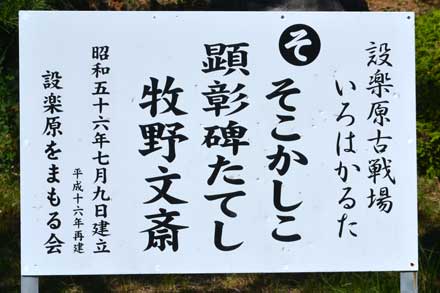 設楽原古戦場
いろはかるた
そ
そこかしこ
顕彰碑たてし
牧野文斎
昭和五十六年七月九日建立
平成十六年再建
設楽原をまもる会